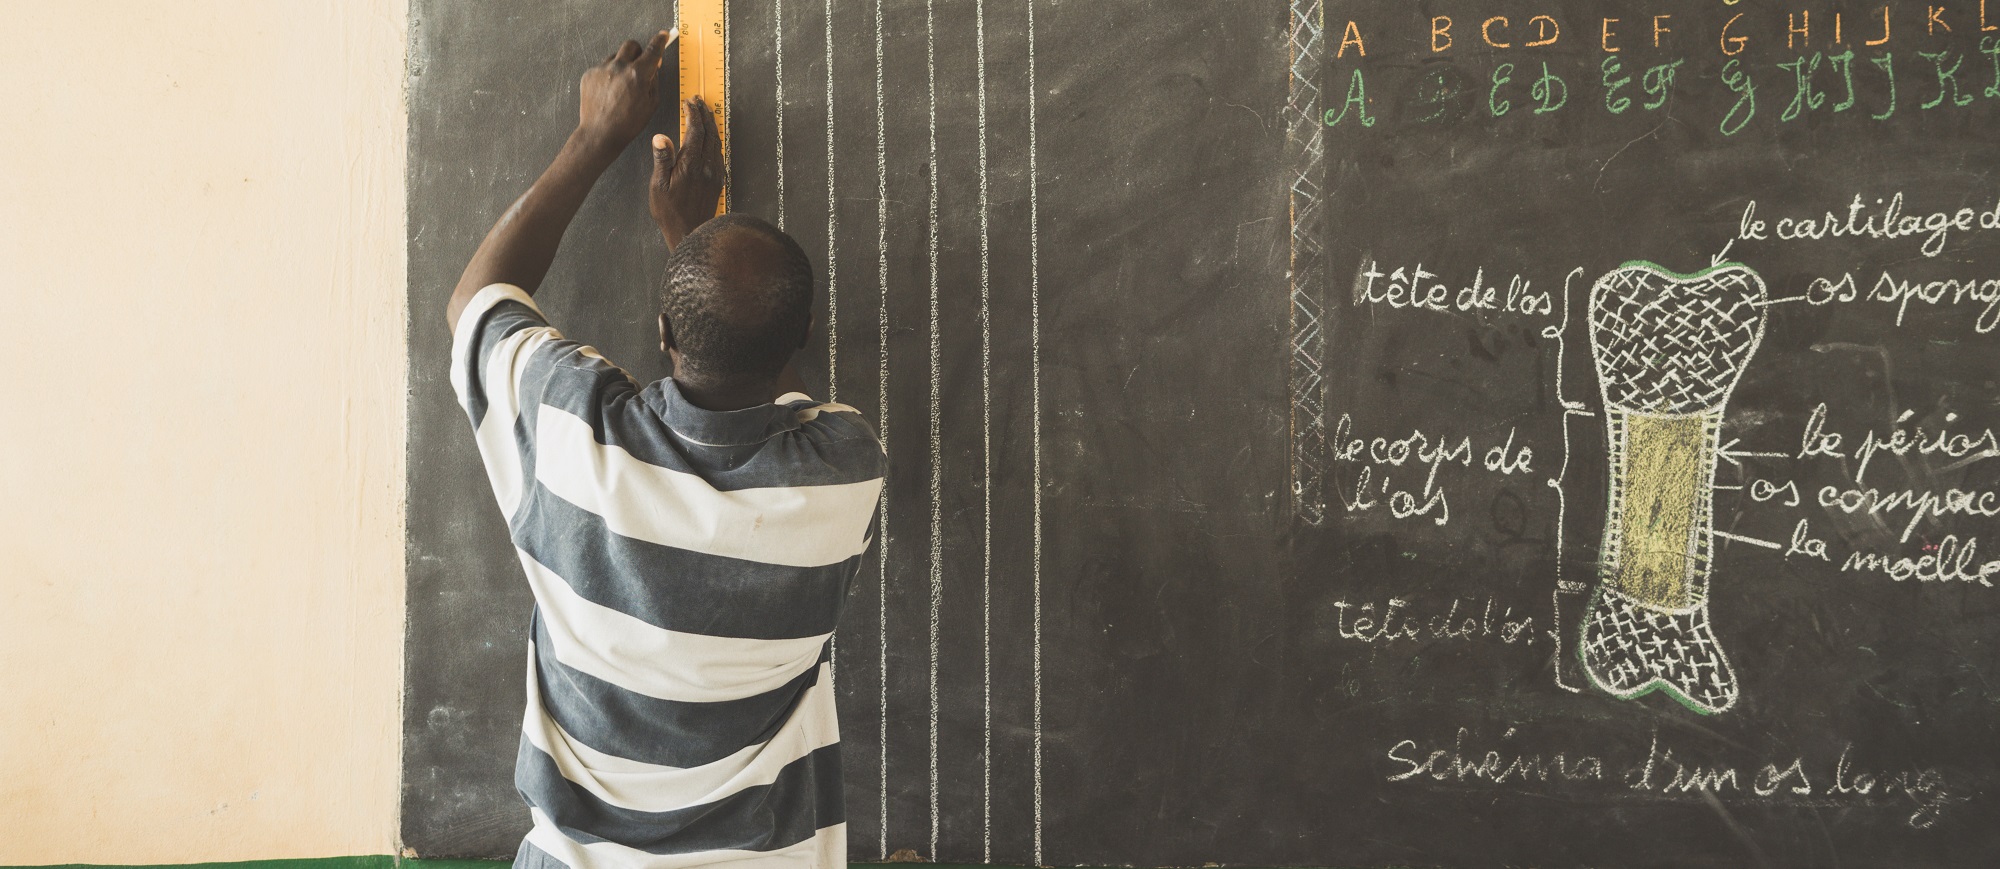 A B C D E F G H I J K L
A E D E F G H I J K L
le cartilage d
tête de l'os
os spong
le corps de
l'os
le périos
os compac
la moelle
tête de l'os
Schéma d'un os long